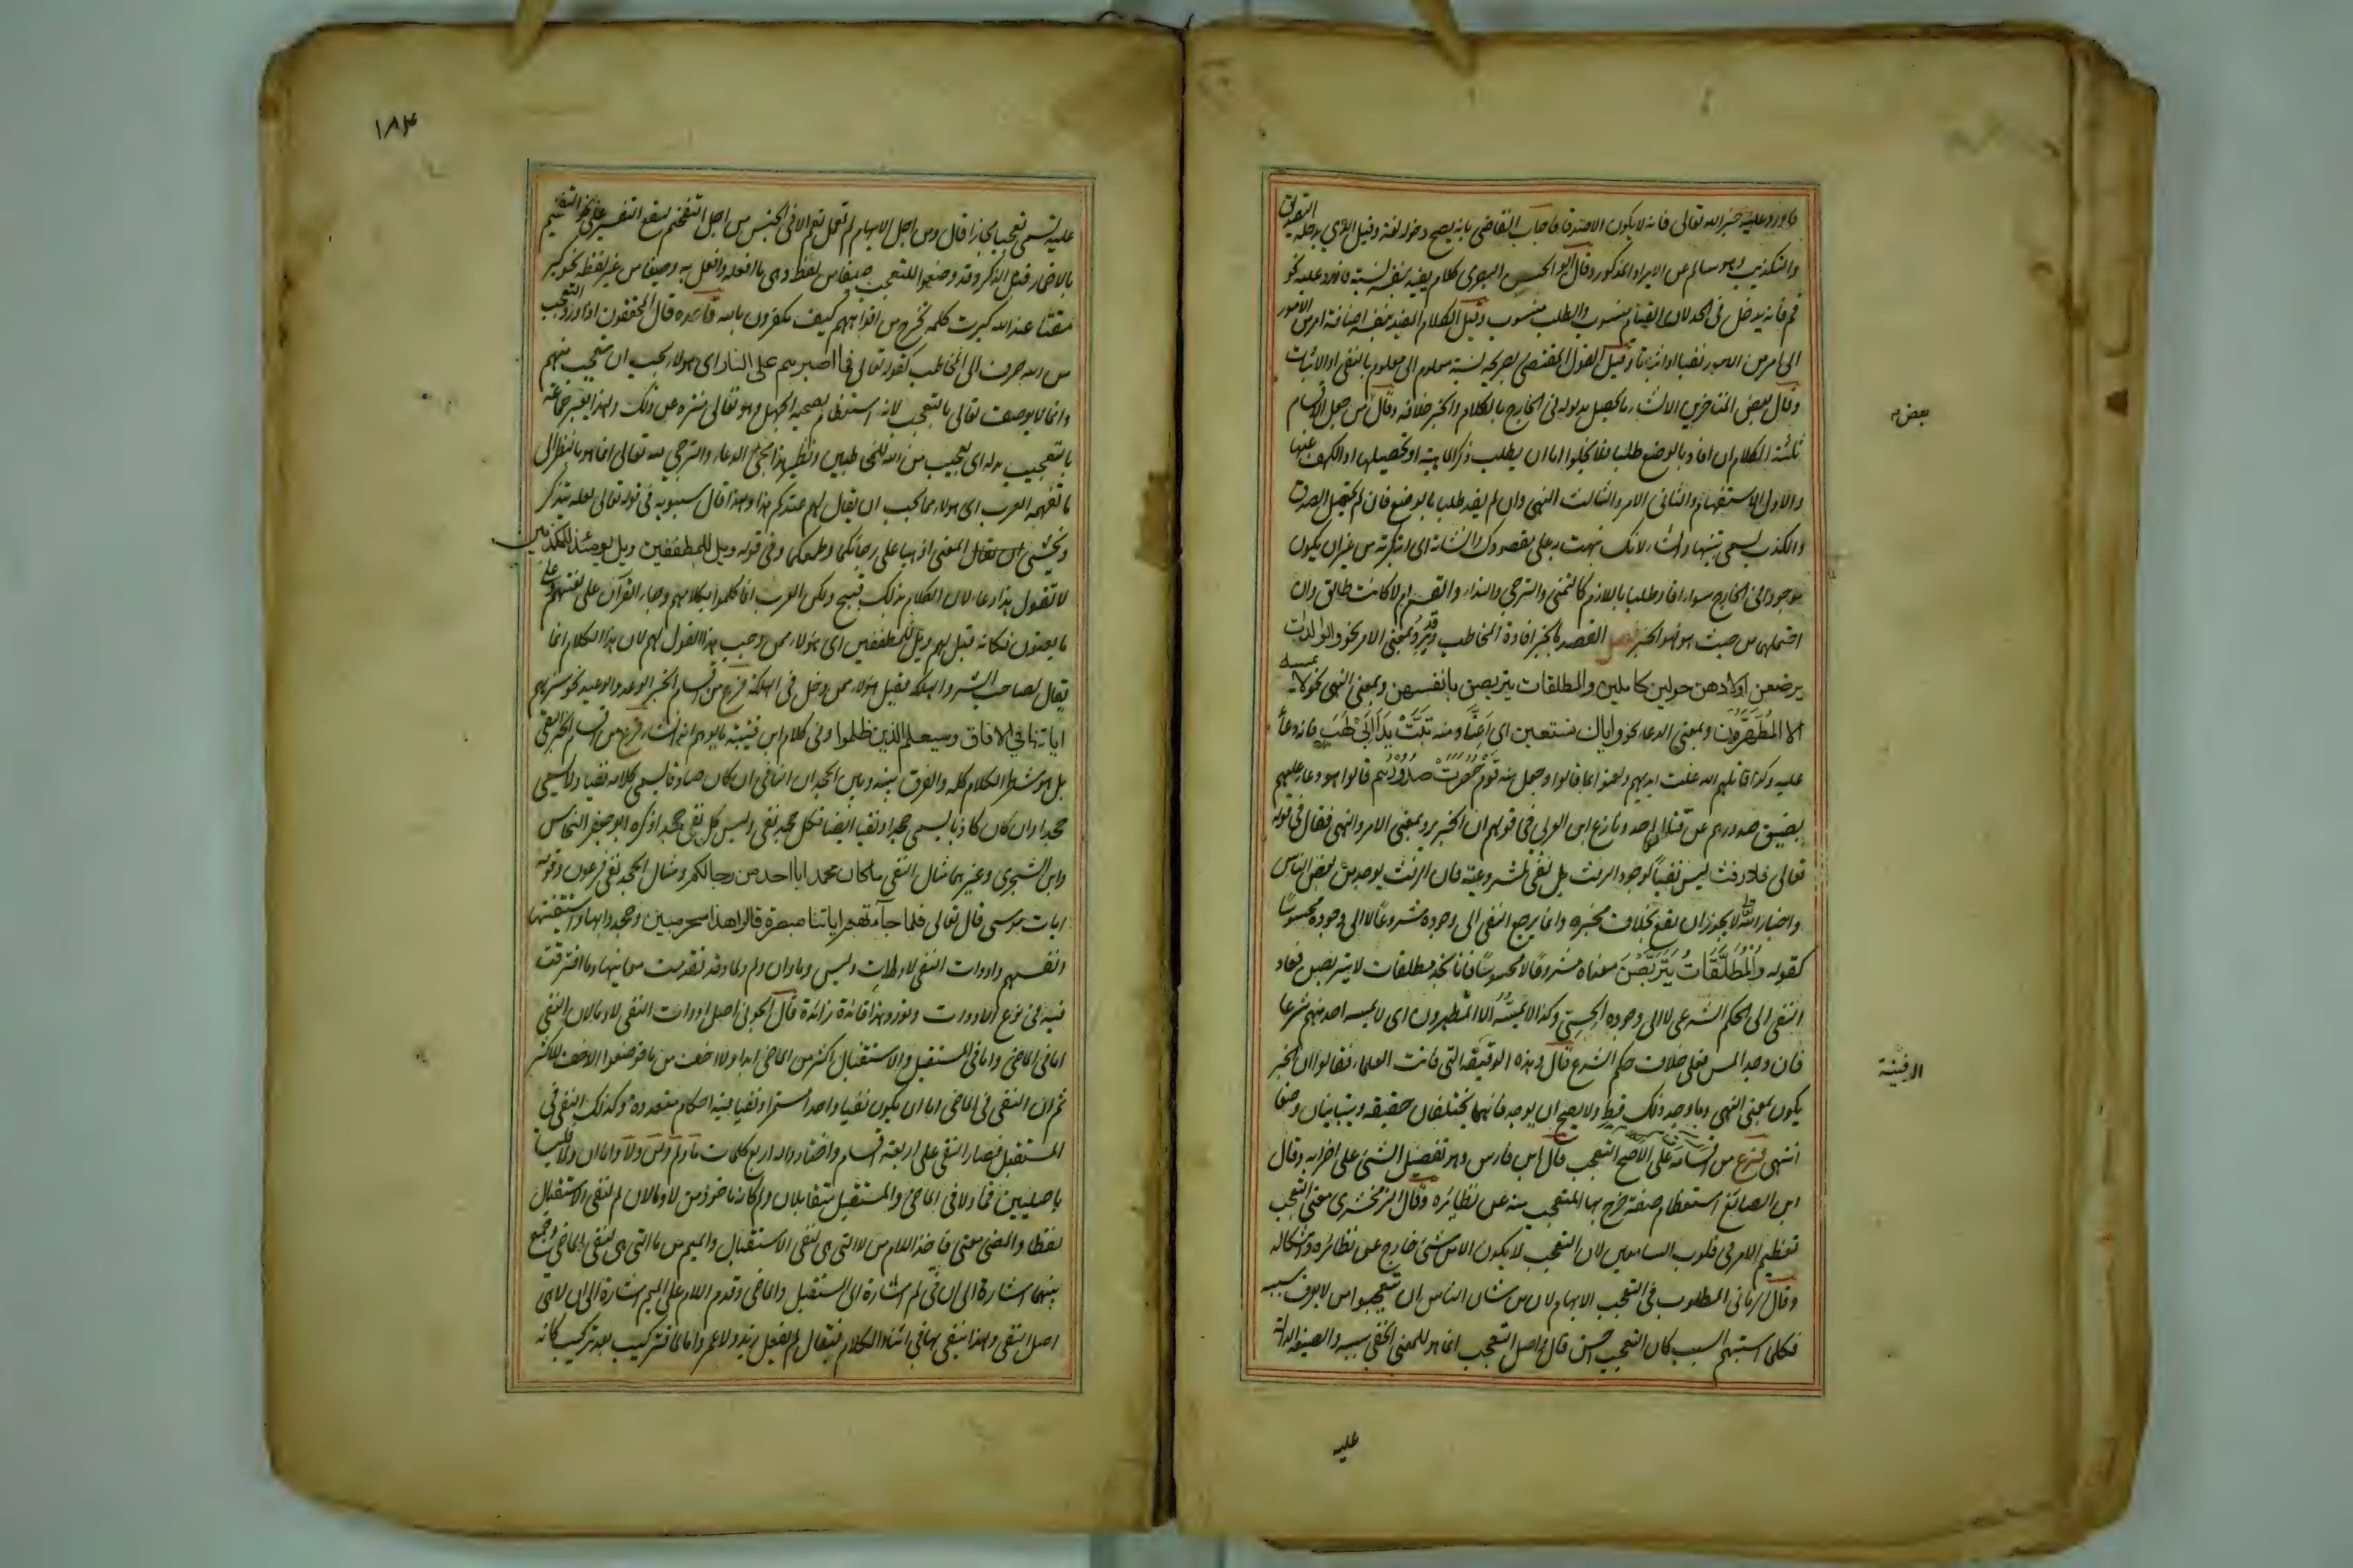 فاورد عليه خبر الله تعالى فانه لا يكون الا صدقا فاجاب القاضى بانه يصح دخوله لغة وقيل الذى يدخله التصديق
والتكذيب وهو سالم عن الايراد المذكور وقال ابو الحسين البصرى كلام يفيد بنفسه نسبة فاورد عليه نحو
قم فانه يدخل فى الحد لان القيام منسوب والطلب منسوب وقيل الكلام المفيد بنفسه اضافة امر من الامور
الى امر من الامور نفيا او اثباتا وقيل القول المقتضى بصريحه نسبة معلوم الى معلوم بالنفى او الاثبات
وقال بعض المتاخرين الانشاء ما يحصل مدلوله فى الخارج بالكلام والخبر خلافه وقال من جعل الاقسام
بعض
ثلثة الكلام ان افاد بالوضع طلبا فلا يخلوا اما ان يطلب ذكر الماهية او تحصيلها او الكف عنها
والاول الاستفهام والثانى الامر والثالث النهى وان لم يفد طلبا بالوضع فان لم يحتمل الصدق
والكذب يسمى تنبيها وانشاء لانك نبهت به على مقصودك وانشاته اى ابتكرته من غير ان يكون
موجودا فى الخارج سواء افاد طلبا باللازم كالتمنى والترجى والنداء والقسم ام لا كانت طالق وان
احتملهما من حيث هو فهو الخبر فصل القصد بالخبر افادة المخاطب وقد يرد بمعنى الامر نحو والوالدات
يرضعن اولادهن حولين كاملين والمطلقات يتربصن بانفسهن وبمعنى النهى نحو لا يمسه
الا المطهرون وبمعنى الدعاء نحو واياك نستعين اى اعنا ومنه تبت يدا ابى لهب فانه دعاء
عليه وكذا قاتلهم الله غلت ايديهم ولعنوا بما قالوا وجعل منه قوم حصرت صدورهم قالوا هو دعاء عليهم
بضيق صدورهم عن قتال احد ونازع ابن العربى فى قولهم ان الخبر يرد بمعنى الامر والنهى فقال فى قوله
تعالى فلا رفث ليس نفيا لوجود الرفث بل نفى لمشروعيته فان الرفث يوجد من بعض الناس
واخبار الله لا يجوز ان يقع بخلاف مخبره وانما يرجع النفى الى وجوده مشروعا لا الى وجوده محسوسا
كقوله والمطلقات يتربصن معناه مشروعا لا محسوسا فانا نجد مطلقات لا يتربصن فعاد
النفى الى الحكم الشرعى لا الى وجوده الحسى وكذا لا يمسه الا المطهرون اى لا يمسه احد منهم شرعا
فان وجد المس فعلى خلاف حكم الشرع قال وهذه الدقيقة التى فاتت العلماء فقالوا ان الخبر
الدفينة
يكون بمعنى النهى وما وجد ذلك قط ولا يصح ان يوجد فانهما يختلفان حقيقة ويتباينان وضعا
انتهى فرع من اقسامه على الاصح التعجب قال ابن فارس وهو تفضيل الشئ على اضرابه وقال
ابن الصايغ استعظام صفة خرج بها المتعجب منه عن نظائره وقال الزمخشرى معنى التعجب
تعظيم الامر فى قلوب السامعين لان التعجب لا يكون الا من شئ خارج عن نظائره واشكاله
وقال الرمانى المطلوب فى التعجب الابهام لان من شان الناس ان يتعجبوا مما لا يعرف سببه
فكلما استبهم السبب كان التعجب احسن قال واصل التعجب انما هو للمعنى الخفى سببه والصيغة الدالة
عليه
١٨٣
عليه تسمى تعجبا مجازا قال ومن اجل الابهام لم تعمل نعم الا فى الجنس من اجل التفخيم ليقع التفسير على نحو التفخيم
بالاضمار قبل الذكر وقد وضعوا للتعجب صيغا من لفظه وهى ما افعله وافعل به وصيغا من غير لفظه نحو كبر
مقتا عند الله كبرت كلمة تخرج من افواههم كيف تكفرون بالله قاعدة قال المحققون اذا ورد التعجب
من الله صرف الى المخاطب كقوله تعالى فما اصبرهم على النار اى هولاء يجب ان يتعجب منهم
وانما لا يوصف تعالى بالتعجب لانه استعظام يصحبه الجهل وهو تعالى منزه عن ذلك ولهذا يعبر جماعة
بالتعجيب بدله اى تعجيب من الله للمخاطبين ونظير هذا مجئ الدعاء والترجى منه تعالى انما هو بالنظر الى
ما تفهمه العرب اى هولاء مما يجب ان يقال لهم عندكم هذا ولهذا قال سيبويه فى قوله تعالى لعله يتذكر
او يخشى ان المعنى اذهبا على رجائكما وطمعكما وفى قوله ويل للمطففين ويل يومئذ للمكذبين
لا تقول هذا دعاء لان الكلام بذلك قبيح ولكن العرب انما تكلموا بكلامهم وجاء القرآن على لغتهم وعلى
ما يعنون فكانه قيل لهم ويل للمطففين اى هولاء ممن وجب هذا القول لهم لان هذا الكلام انما
يقال لصاحب الشر والهلكة فقيل هولاء ممن دخل فى الهلكة فرع من اقسام الخبر الوعد والوعيد نحو سنريهم
اياتنا فى الافاق وسيعلم الذين ظلموا وفى كلام ابن قتيبة ما يوهم انه انشاء فرع من اقسام الخبر النفى
بل هو شطر الكلام كله والفرق بينه وبين الجحد ان النافى ان كان صادقا يسمى كلامه نفيا ولا يسمى
جحدا وان كان كاذبا يسمى جحدا ونفيا ايضا فكل جحد نفى وليس كل نفى جحدا ذكره ابو جعفر النحاس
وابن الشجرى وغيرهما مثال النفى ما كان محمد ابا احد من رجالكم ومثال الجحد نفى فرعون وقومه
ايات موسى قال تعالى فلما جاءتهم اياتنا مبصرة قالوا هذا سحر مبين وجحدوا بها واستيقنتها
انفسهم وادوات النفى لا ولات وليس وما وان ولم ولما وقد تقدمت معانيها وما افترقت
فيه فى نوع الادوات ونورد هنا فائدة زائدة قال الخويى اصل ادوات النفى لا وما لان النفى
اما فى الماضى واما فى المستقبل والاستقبال اكثر من الماضى ابدا ولا اخف من ما فوضعوا الاخف للاكثر
ثم ان النفى فى الماضى اما ان يكون نفيا واحدا مستمرا او نفيا فيه احكام متعددة وكذلك النفى فى
المستقبل فصار النفى على اربعة اقسام واختاروا له اربع كلمات ما ولم ولن ولا واما ان ولما فليسا
باصليين فما ولا فى الماضى والمستقبل متقابلان ولم كانه ماخوذ من لا وما لان لم لنفى الاستقبال
لفظا والمضى معنى فاخذ اللام من لا التى هى لنفى الاستقبال والميم من ما التى هى لنفى الماضى وجمع
بينهما اشارة الى ان فى لم اشارة الى المستقبل والماضى وقدم اللام على الميم اشارة الى ان لا هى
اصل النفى ولهذا ينفى بها فى اثناء الكلام فيقال لم يفعل زيد ولا عمرو واما لما فتركيب بعد تركيب كانه